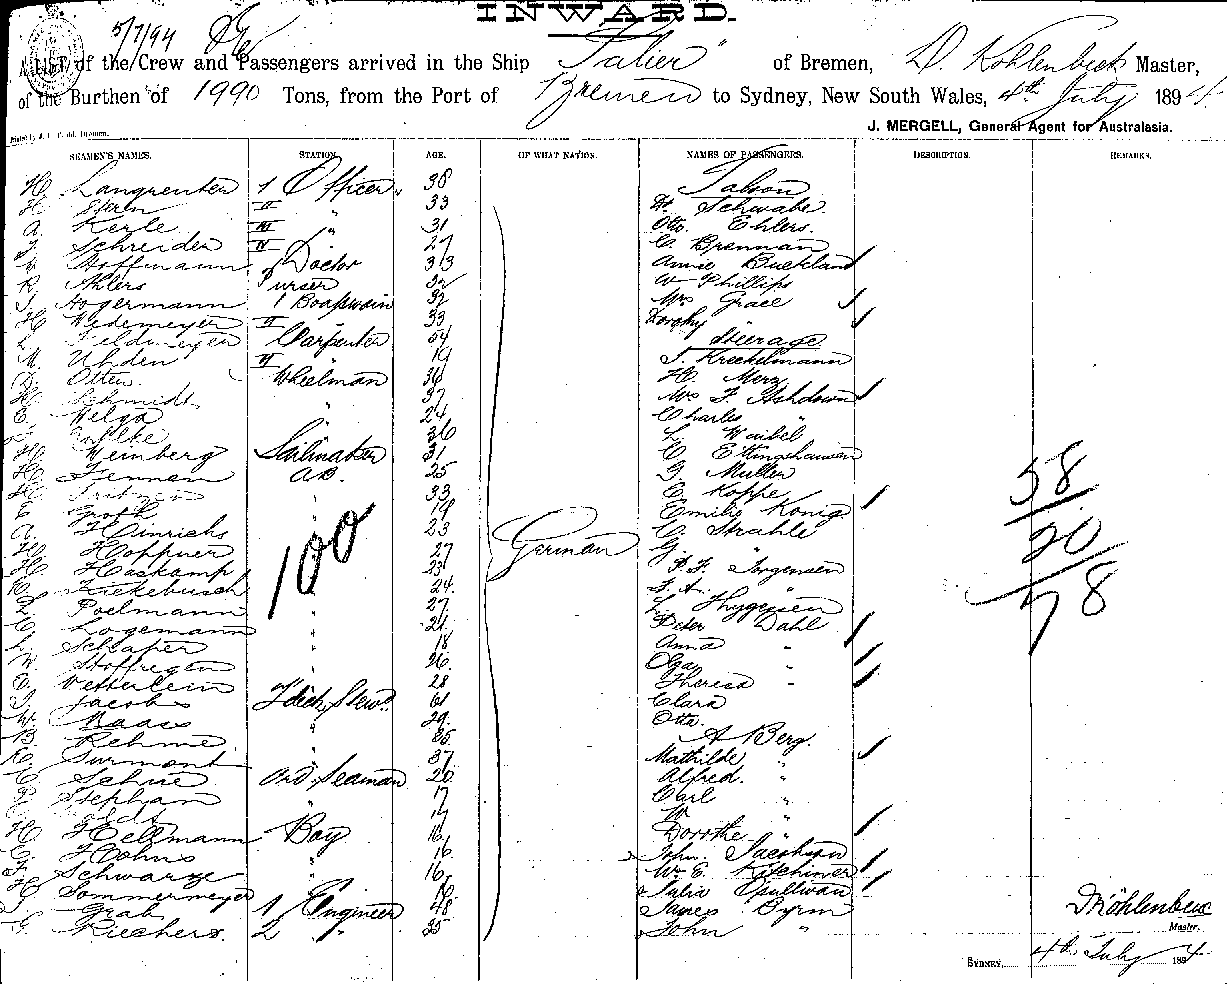 INWARD.
5/7/94
A LIST of the Crew and Passengers arrived in the Ship "Salier" of Bremen, D. Köhlenbeck Master,
of the Burthen of 1990 Tons, from the Port of Bremen to Sydney, New South Wales, 4th July 1894
J. MERGELL, General Agent for Australasia.
SEAMEN'S NAMES. STATION. AGE. OF WHAT NATION. NAMES OF PASSENGERS. DESCRIPTION. REMARKS.
H. Langreuter 1 Officer 38 Saloon
H. Stern II " 33 H. Schwabe
A. Kerle III " 31 Otto Ehlers.
J. Schreiden IV " 27 C. Brennan
Hoffmann Doctor 33 Annie Buckland
R. Ahlers Purser 32 W Phillips
J. Hogermann 1 Boatswain 32 Mrs Grace
H. Wedemeyer II " 33 Dorothy
L. Feldmeyer Carpenter 54 Steerage
M. Uhden II " 19 J. Kreckelmann
D. Otten. Wheelman 36 H. Merz
H. Schmidt " 37 Mrs F. Ashdown
E. Helga " 24 Charles "
36 L. Waibel
H. Weinberg Sailmaker 31 C. Ettingshausen
H. Fennen A.B. 25 G. Muller
H. 33 C. Koppe
E. Groth 19 Emilie König
A. Hinrichs 23 C. Strahle
H. Hoppner 27 German G. "
H. Haskamp 23 P. F. Jorgensen
Fickebusch 24 F. A. "
L. Poelmann 27 L. Thygesen
C. Logemann 21 Peter Dahl
L. Schlaper 18 Anna "
W. Stoffregen 26 Olga
O. Vetterlein 28 Theresa "
J. Jacobs 2d ch. Stewd. 61 Clara
W. Maass 29 Otto.
B. Rehme 35 A Berg.
C. Surmont 37 Mathilde "
C. Schue Ord. Seaman 20 Alfred. "
Stephan " 17 Carl "
17 W "
H. Hellmann Boy 16 Dorothe "
G. Hohns " 16 John Jacobson
F. Schwarze " 16 W. E. Kitchiner
H. Sommermeyer 16 Julia O'Sullivan
J. Grab 1 Engineer 48 James Byrm
G. Riechers. 2 " 35 John "
100
58
20
78
Köhlenbeck
Master.
SYDNEY, 4th July 1894